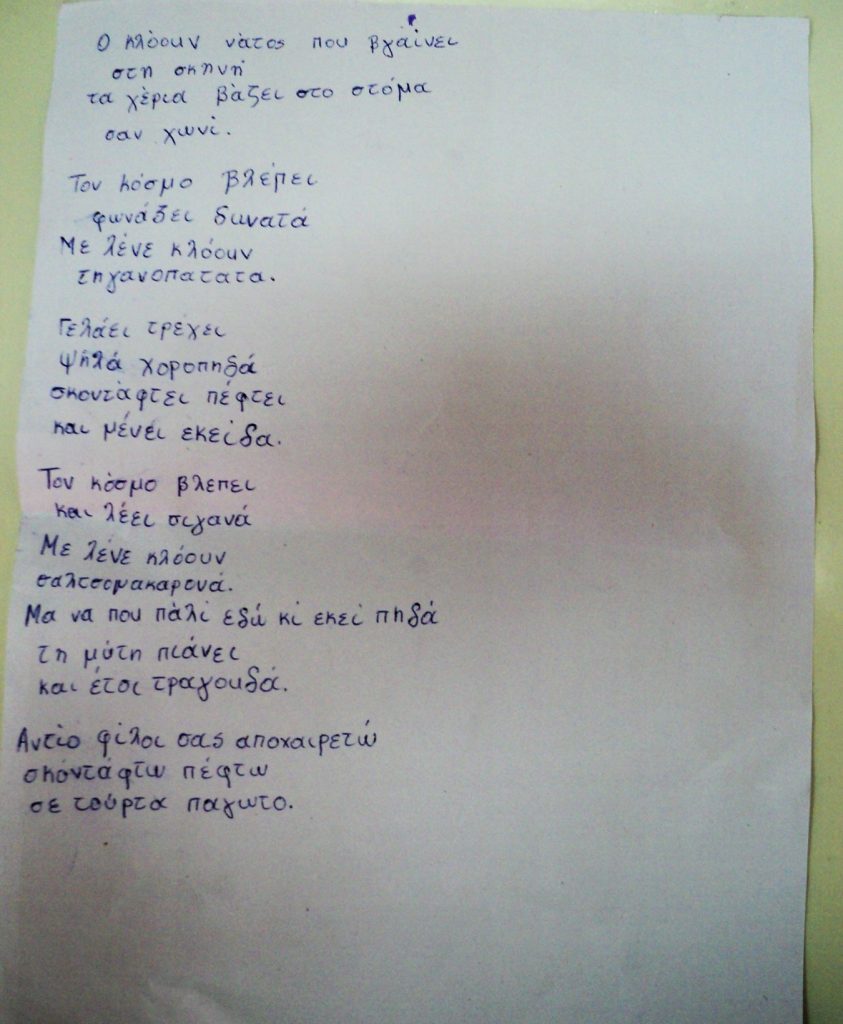 Ο κλόουν νάτος που βγαίνει
στη σκηνή
τα χέρια βάζει στο στόμα
σαν χωνί.
Τον κόσμο βλέπει
φωνάζει δυνατά
Με λένε κλόουν
τηγανοπατατα.
Γελάει τρεχει
ψηλά χοροπηδά
σκοντάφτει πέφτει
και μένει εκείδα.
Τον κόσμο βλεπει
και λέει σιγανά
Με λένε κλόουν
σαλτσομακαρονά.
Μα να που πάλι εδώ κι εκεί πηδά
τη μύτη πιάνει
και έτσι τραγουδά.
Αντίο φίλοι σας αποχαιρετώ
σκοντάφτω πέφτω
σε τούρτα παγωτο.